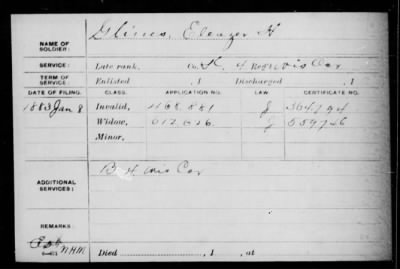 Glines, Eleazer H
NAME OF
SOLDIER:
SERVICE: Late rank, Co. K, 4 Reg't Wis Cav
TERM OF
SERVICE: Enlisted , 1 Discharged , 1
DATE OF FILING. CLASS. APPLICATION NO. LAW. CERTIFICATE NO.
1883 Jan 8 Invalid, 468.881 364794
Widow, 559746
Minor,
ADDITIONAL
SERVICES:
B 4 Wis Cav
REMARKS:
Died , 1 , at